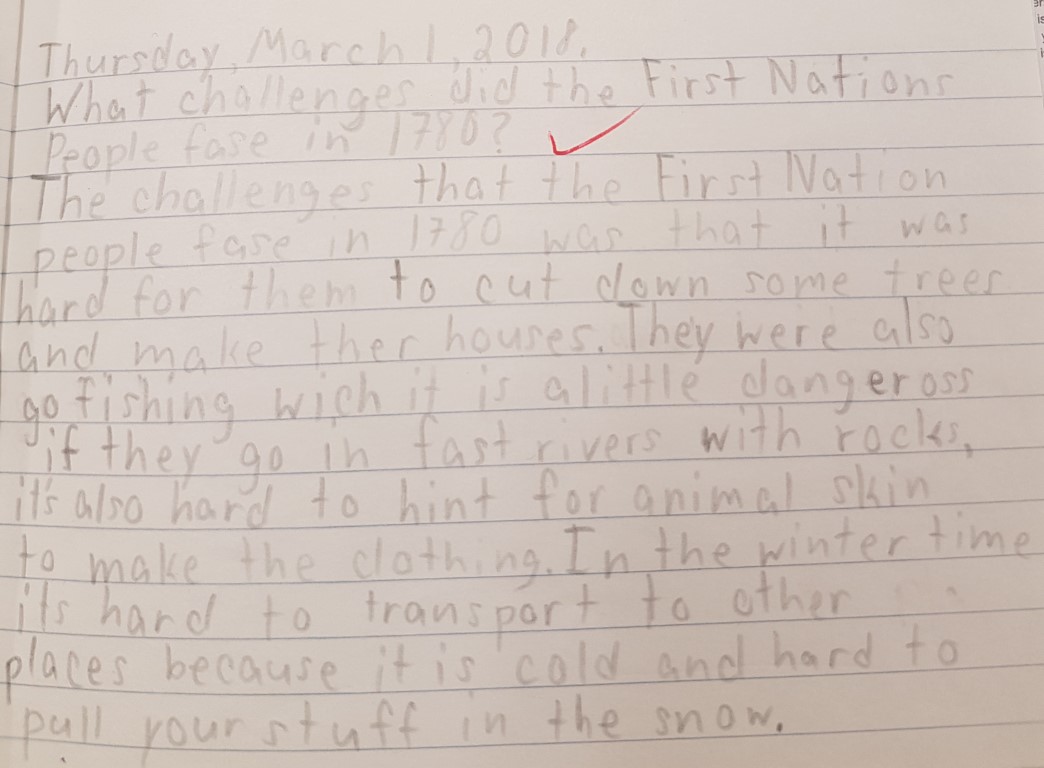 Thursday, March 1, 2018.
What challenges did the First Nations
People fase in 1780?
The challenges that the First Nation
people fase in 1780 was that it was
hard for them to cut down some trees
and make ther houses. They were also
go fishing wich it is alittle dangeross
if they go in fast rivers with rocks,
it's also hard to hint for animal skin
to make the clothing. In the winter time
its hard to transport to other
places because it is cold and hard to
pull your stuff in the snow.